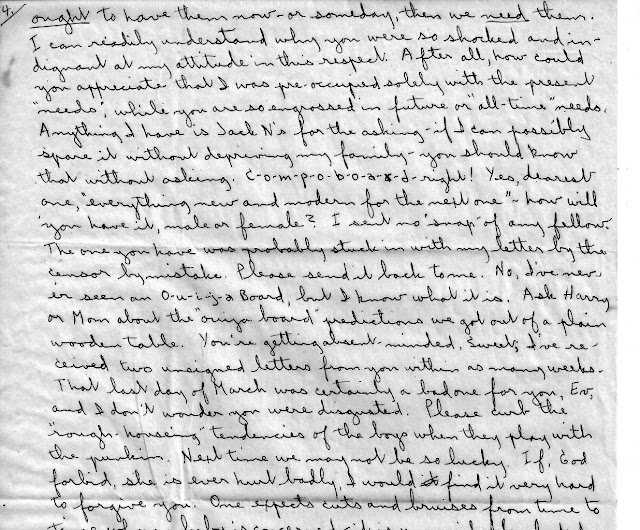 4.
ought to have them now - or someday, then we need them.
I can readily understand why you were so shocked and in-
dignant at my attitude in this respect. After all, how could
you appreciate that I was pre-occupied solely with the present
"needs", while you are so engrossed in future or "all-time" needs.
Anything I have is Jack N's for the asking - if I can possibly
spare it without depriving my family - you should know
that without asking. C-o-m-p-o-b-o-a-r-d - right! Yes, dearest
one, "everything new and modern for the next one" - how will
you have it, male or female? I sent no "snap" of any fellow.
The one you have was probably stuck in with my letter by the
censor by mistake. Please send it back to me. No, I've nev-
er seen an O-u-i-j-a Board, but I know what it is. Ask Harry
or Mom about the "ouija board" predictions we got out of a plain
wooden table. You're getting absent-minded, Sweet, I've re-
ceived two unsigned letters from you within as many weeks.
That last day of March was certainly a bad one for you, Ev,
and I don't wonder you were disgusted. Please curb the
"rough-horseing" tendencies of the boys when they play with
the punkin. Next time we may not be so lucky. If, God
forbid, she is ever hurt badly, I would find it very hard
to forgive you. One expects cuts and bruises from time to